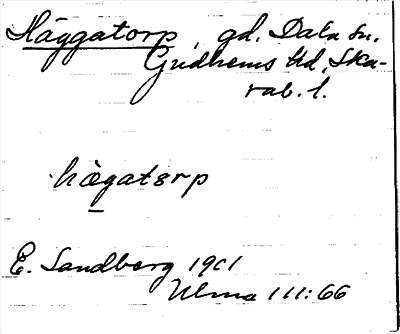 Häggatorp, gd. Dala sn.
Gudhems hd, Ska-
rab. l.
hægatɜrp
E. Sandberg 1901
Ulma 111:66